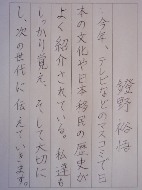 鐙野裕悟
今年、テレビなどのマスコミで日
本の文化や日本移民の歴史が
よく紹介されている。私達も
しっかり覚え、そして大切に
し、次の世代に伝えていきます。